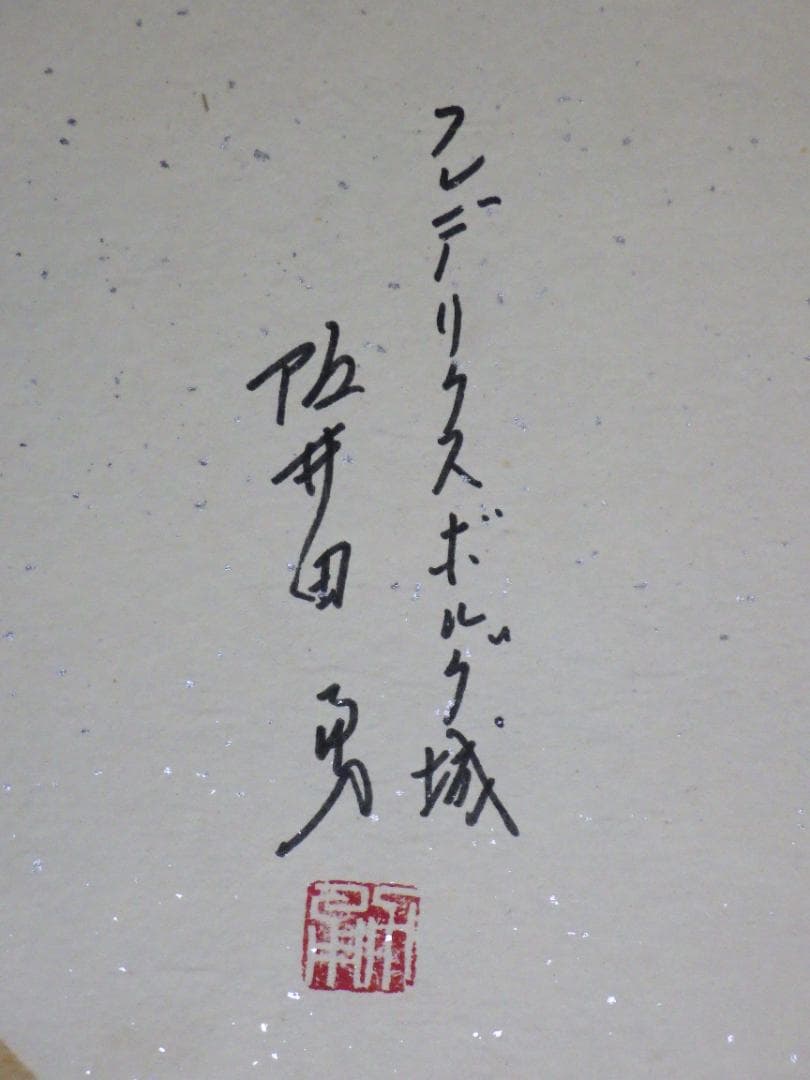 フレデリクスボルグ城
阪井田 勇